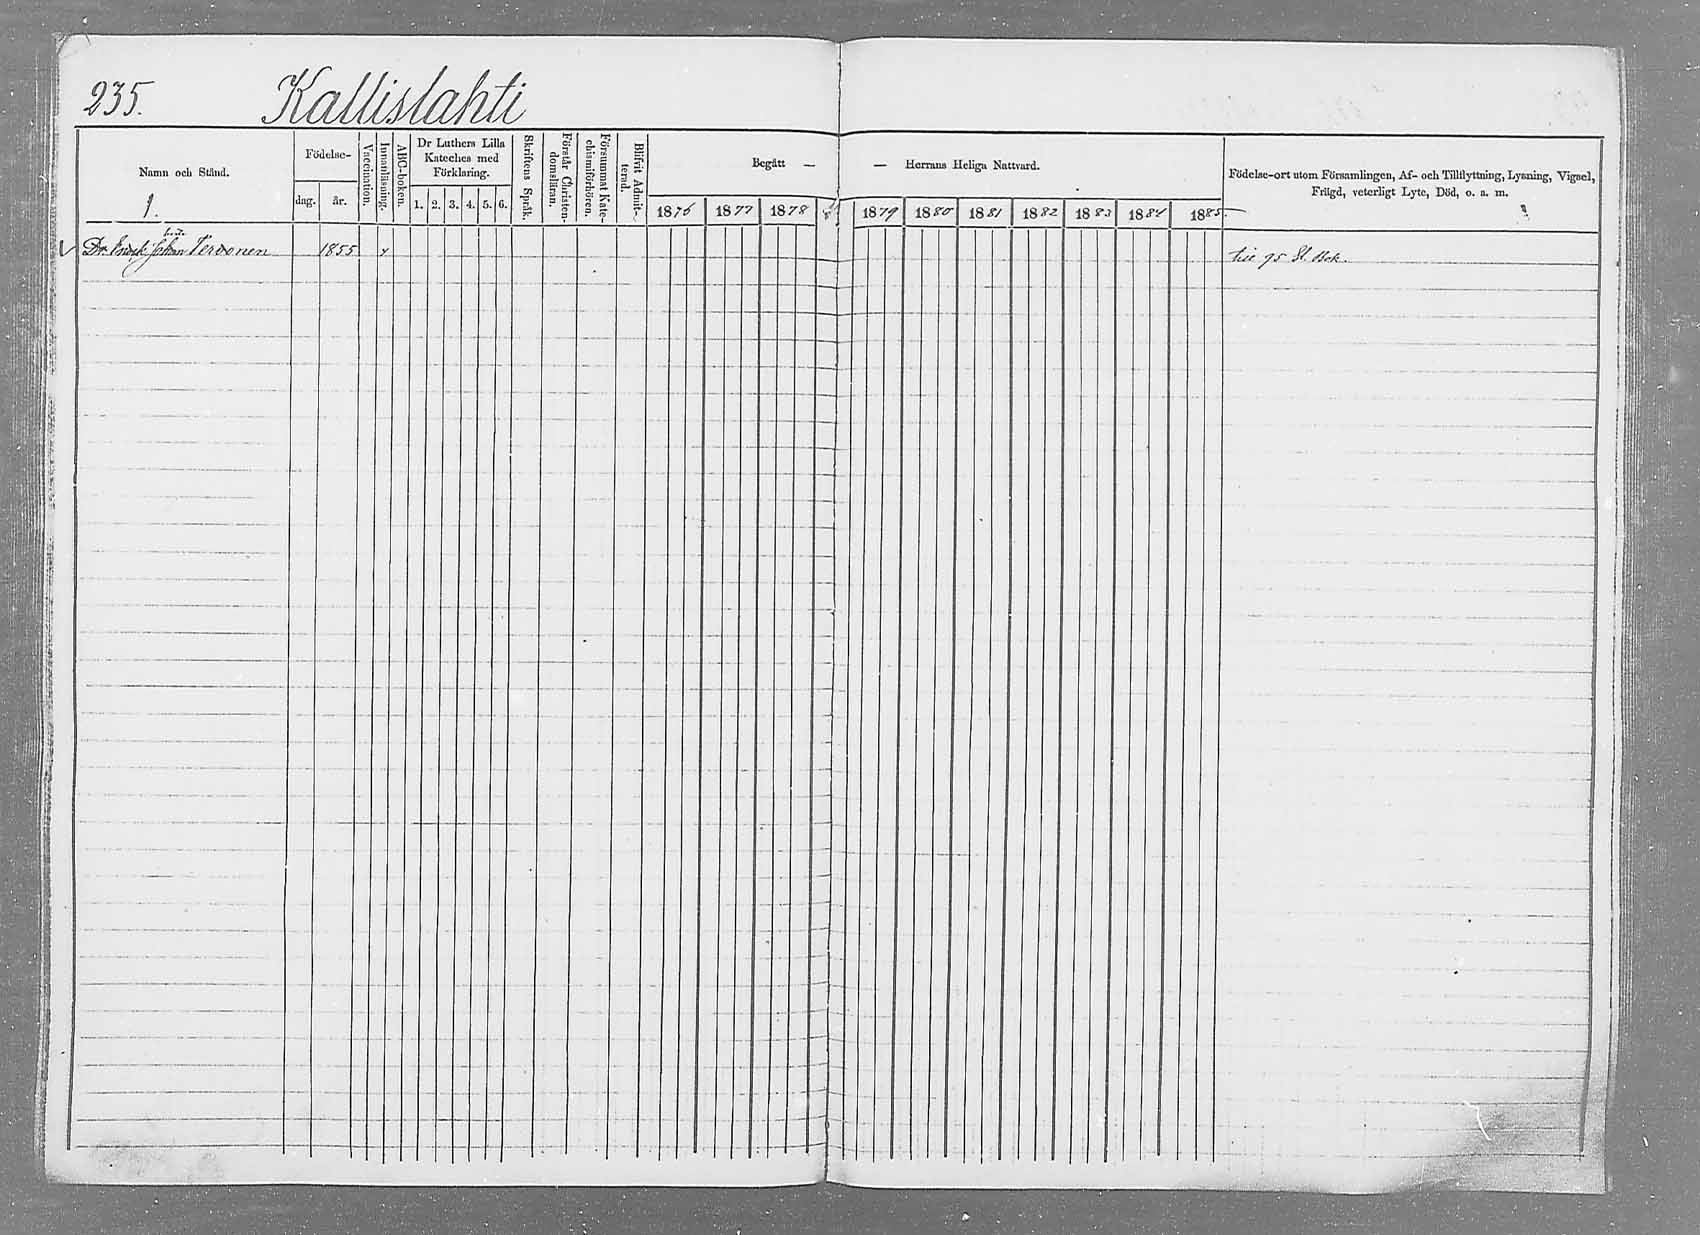 235. Kallislahti
Namn och Stånd.
Födelse-
dag. år.
Vaccination.
Innanläsning.
ABC-boken.
Dr Luthers Lilla
Kateches med
Förklaring.
1. 2. 3. 4. 5. 6.
Skriftens Språk.
Förstår Christen-
domsläran.
Försummat Kate-
chismiförhören.
Blifvit Admit-
terad.
Begått — — Herrans Heliga Nattvard.
1876 1877 1878 1879 1880 1881 1882 1883 1884 1885
Födelse-ort utom Församlingen, Af- och Tillflyttning, Lysning, Vigsel,
Frägd, veterligt Lyte, Död, o. a. m.
1.
Dr. Johan Tervonen 1855 95 Bok.